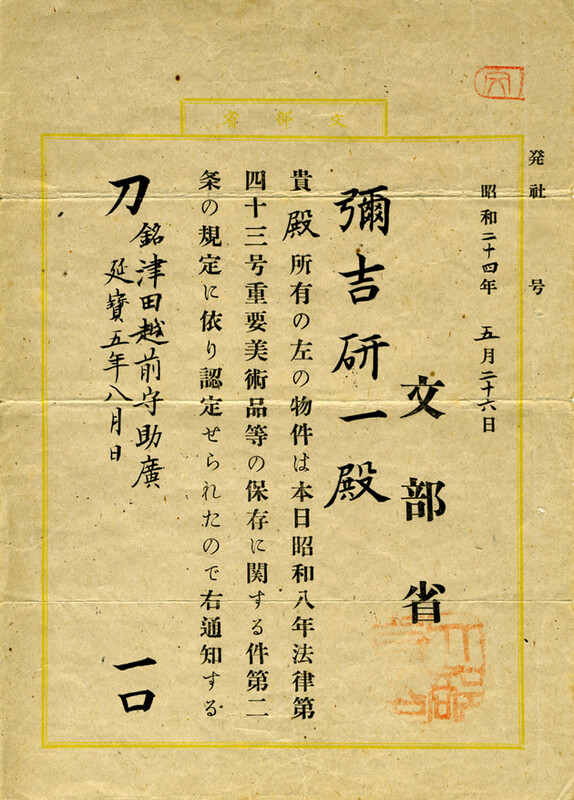 文部省
発社 号
昭和二十四年 五月二十六日
文部省
彌吉研一殿
貴殿所有の左の物件は本日昭和八年法律第
四十三号重要美術品等の保存に関する件第二
条の規定に依り認定せられたので右通知する
刀 一口
銘津田越前守助廣
延寳五年八月日